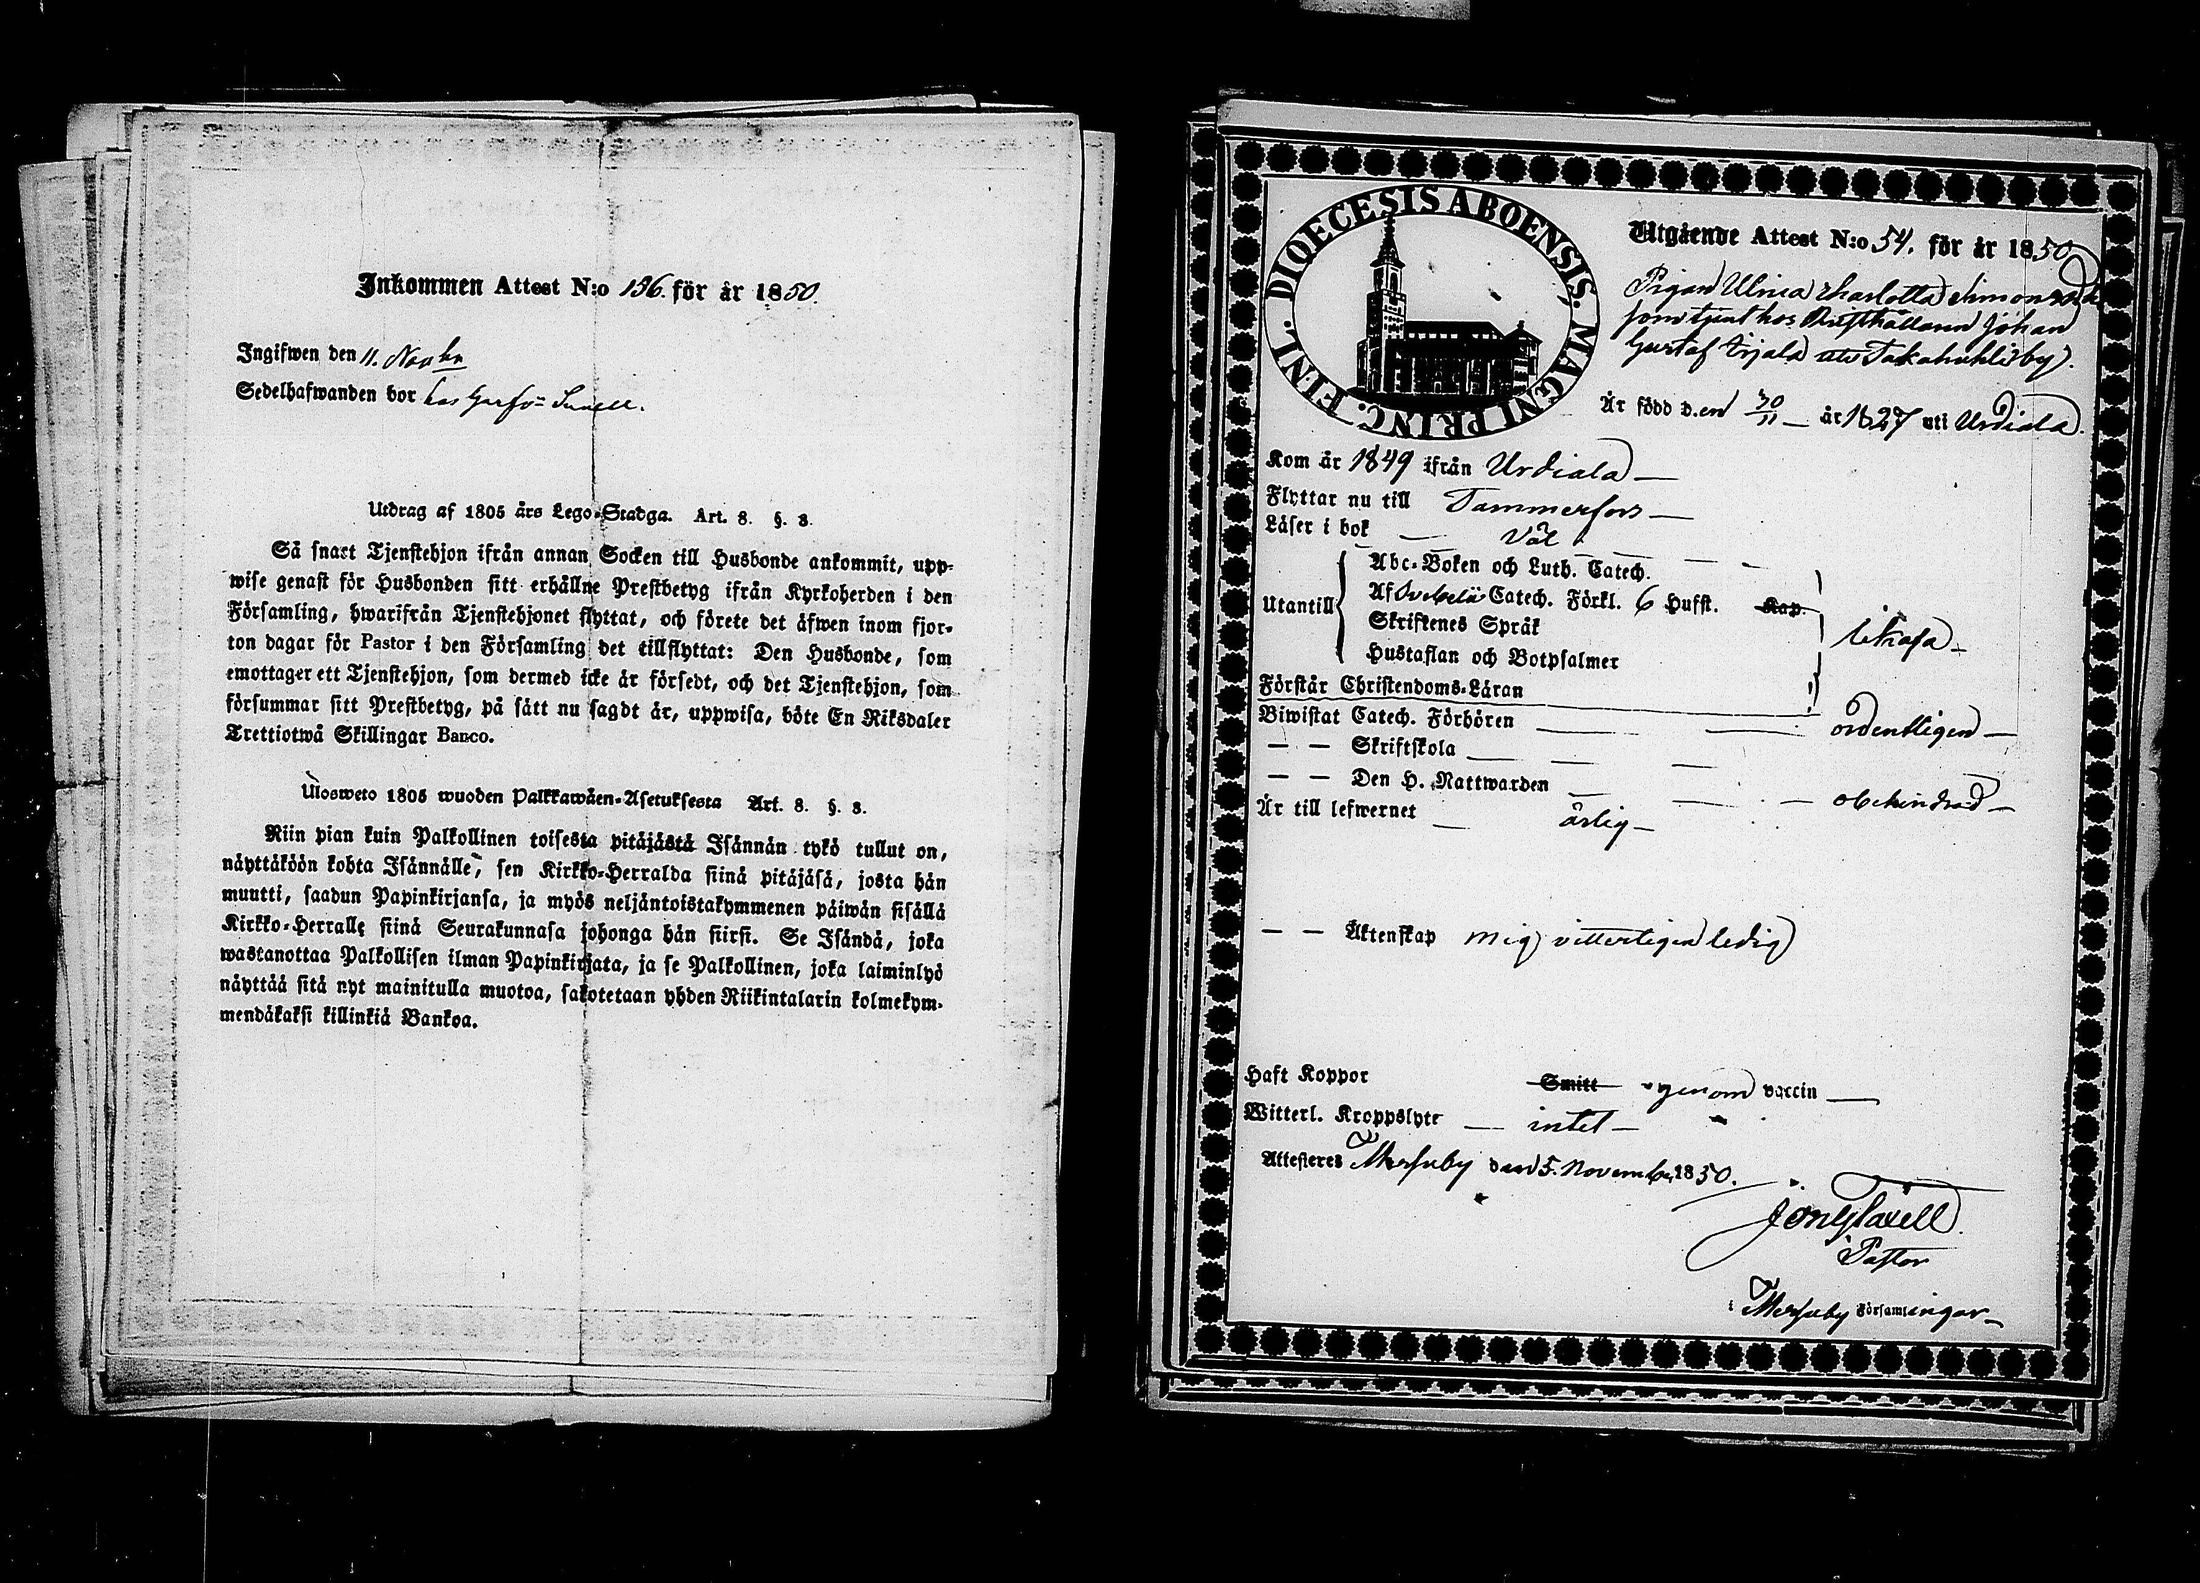 Inkommen Attest N:o 156. för år 1850.
Ingifwen den 11. Novbr
Sedelhafwanden bor hos Garfv:
Utdrag af 1805 års Lego-Stadga. Art. 8. §. 8.
Så snart Tjenstehjon ifrån annan Socken till Husbonde ankommit, upp-
wise genast för Husbonden sitt erhållne Prestbetyg ifrån Kyrkoherden i den
Församling, hwarifrån Tjenstehjonet flyttat, och förete det äfwen inom fjor-
ton dagar för Pastor i den Församling det tillflyttat: Den Husbonde, som
emottager ett Tjenstehjon, som dermed icke är försedt, och det Tjenstehjon, som
försummar sitt Prestbetyg, på sätt nu sagdt är, uppwisa, böte En Riksdaler
Trettiotwå Skillingar Banco.
Ulosweto 1805 wuoden Palkkawäen-Asetuksesta Art. 8. §. 8.
Niin pian kuin Palkollinen toisesta pitäjästä Isännän tykö tullut on,
näyttäköön kohta Isännälle, sen Kirkko-Herralda siinä pitäjäsä, josta hän
muutti, saadun Papinkirjansa, ja myös neljäntoistakymmenen päiwän sisällä
Kirkko-Herralle siinä Seurakunnasa johonga hän siirsi. Se Isändä, joka
wastanottaa Palkollisen ilman Papinkirjata, ja se Palkollinen, joka laiminlyö
näyttää sitä nyt mainitulla muotoa, sakotetaan yhden Riikintalarin kolmekym-
mendäkaksi killinkiä Bankoa.
DIOECESIS ABOENSIS. MAGNI PRINC. FINL.
Utgående Attest N:o 54. för år 1850
Pigan Ulrica Charlotta Simonsdr
som tjent hos Rusthållaren Johan
Gustaf Erjala uti Takahuhti by.
Är född den 30/11 år 1827 uti Urdiala.
Kom år 1849 ifrån Urdiala
Flyttar nu till Tammerfors
Läser i bok Väl
Utantill
Abc-Boken och Luth. Catech.
Af Svebelii Catech. Förkl. 6 Hufst. Kap.
Skriftenes Språk
Hustaflan och Botpsalmer
Förstår Christendoms-Läran
Biwistat Catech. Förhören ordentligen
— — Skriftskola
— — Den H. Nattwarden obehindrad
Är till lefwernet ärlig
— — Äktenskap mig vitterligen ledig
Haft Koppor Smitt genom vaccin
Witterl. Kroppslyte intet
Attesteres Messuby den 5. November 1850.
Pastor
i Messuby Församlingar